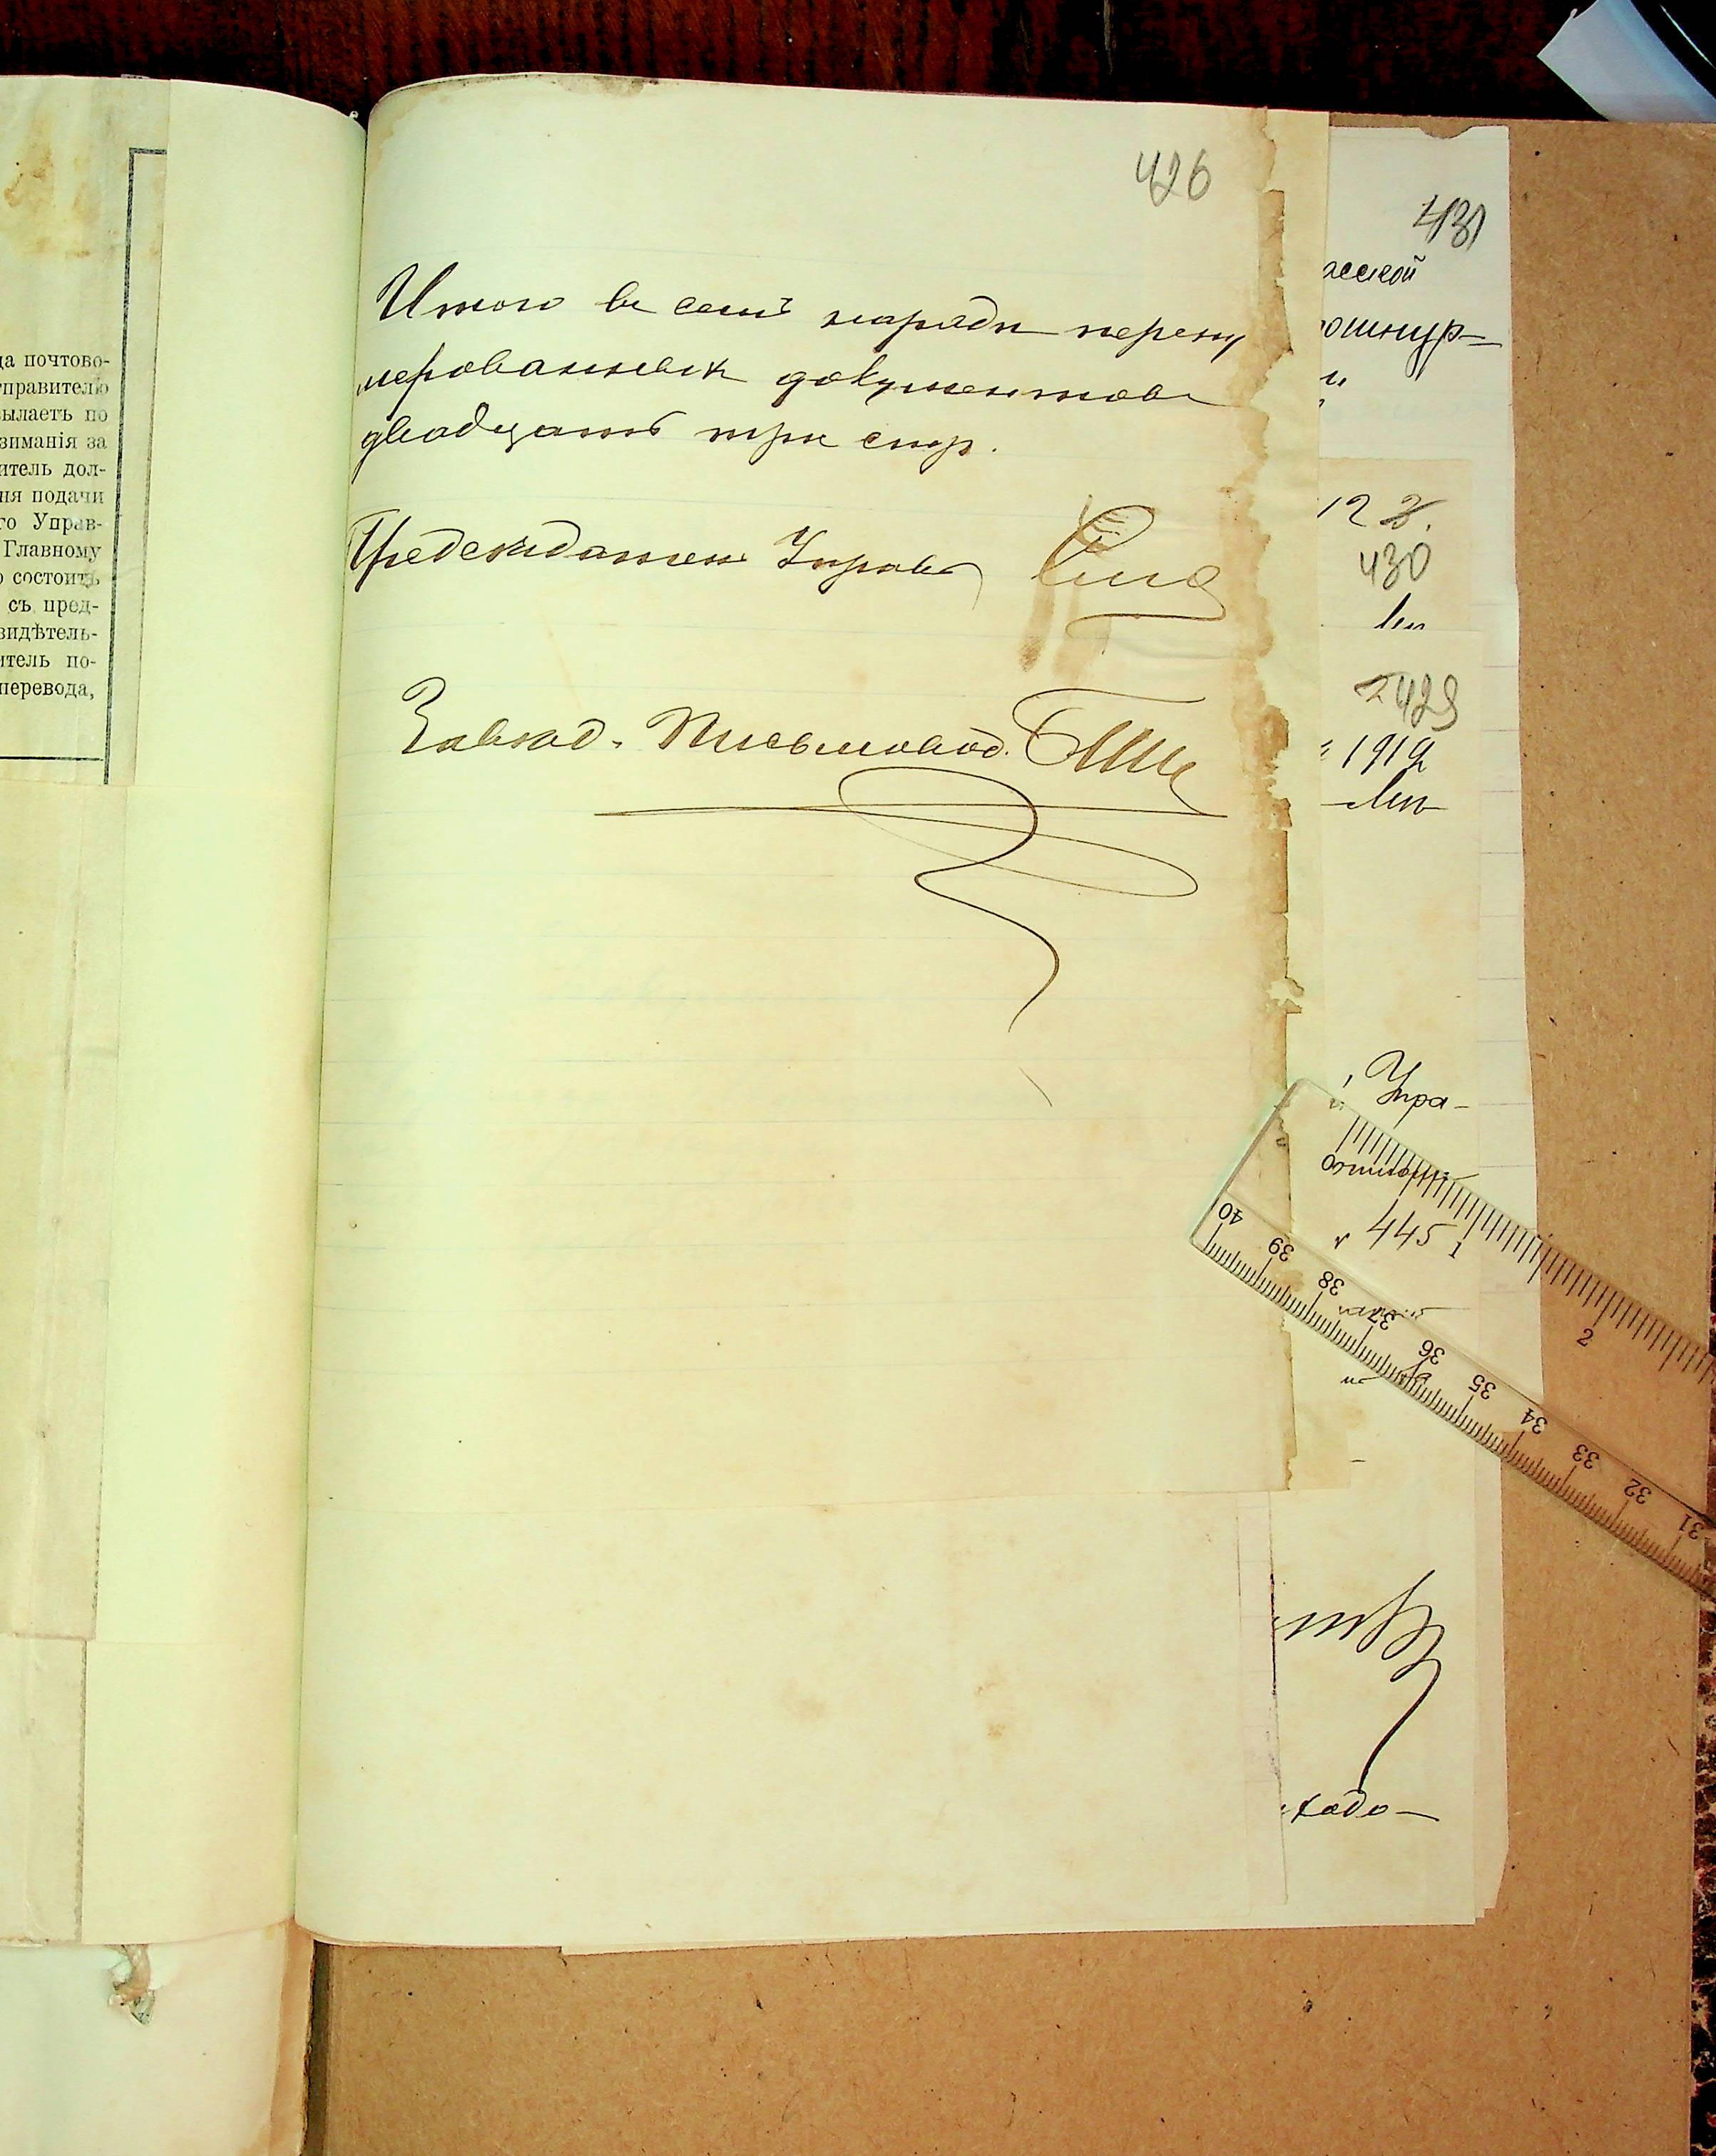 да почтово-
тправителю
сылаетъ по
зиманія за
итель дол-
ня подачи
го Управ-
Главному
о состоитъ
съ пред-
видѣтель-
итель по-
перевода,
426
Итого въ семъ наряди перену
мерованныхъ документовъ
двадцать три стр.
Председатель Управы
Завход. Письмовод.
431
ошнур-
12
430
429
1919
Упра-
445
ходо-
40 39 38 37 36 35 34 33 32 31
1 2